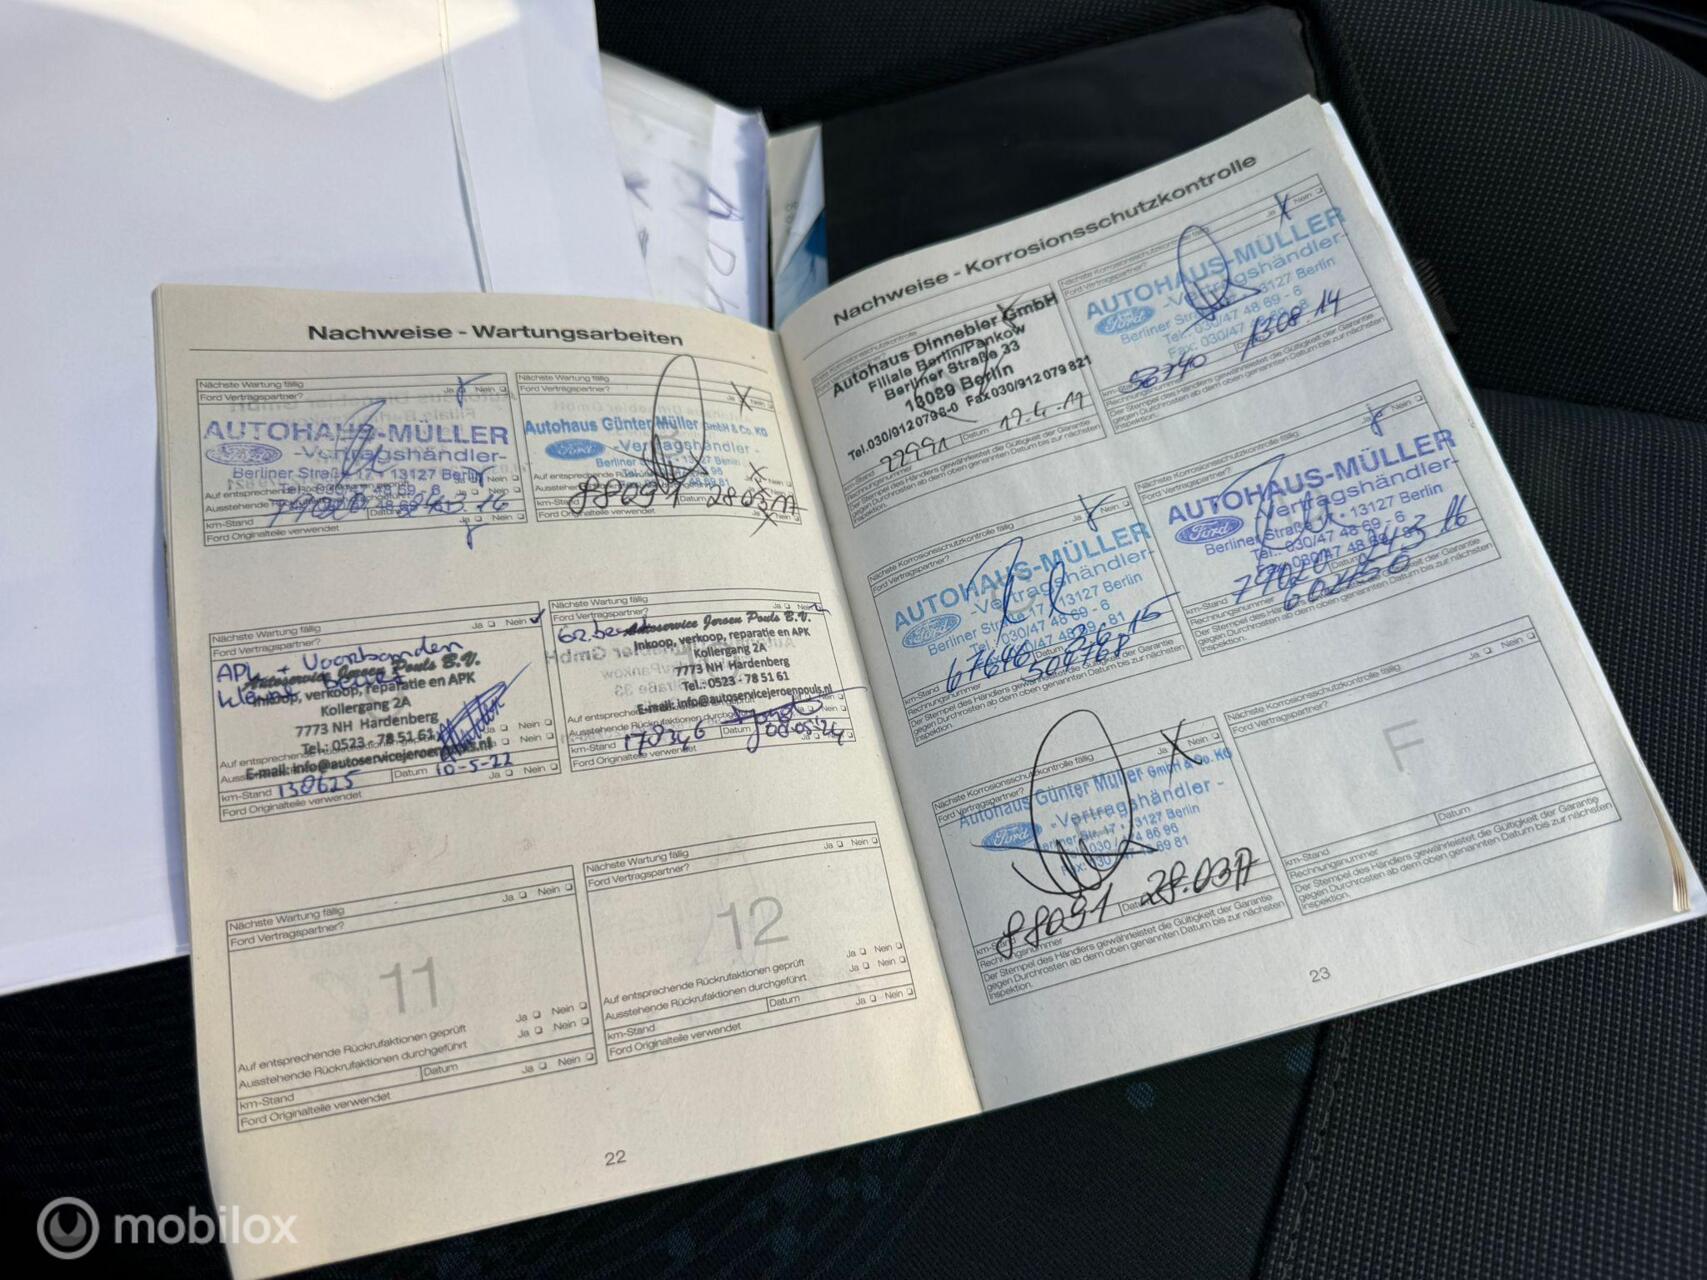 Nachweise - Wartungsarbeiten
Nächste Wartung fällig Ja Nein
Ford Vertragspartner?
AUTOHAUS-MÜLLER
-Vertragshändler-
Berliner Straße 17 • 13127 Berlin
Tel.: 030/47 48 69 - 6
km-Stand
Ford Originalteile verwendet
Nächste Wartung fällig
Ford Vertragspartner? Ja Nein
Autohaus Günter Müller GmbH & Co. KG
Ford
-Vertragshändler-
km-Stand 88091 Datum 28.03.17
Ford Originalteile verwendet
Nächste Wartung fällig Ja Nein
Ford Vertragspartner?
APK + Voorbanden
Autoservice Jeroen Pouls B.V.
Inkoop, verkoop, reparatie en APK
Kollergang 2A
7773 NH Hardenberg
Tel.: 0523 - 78 51 61
E-mail: info@autoservicejeroenpouls.nl
km-Stand 138625 Datum 10-5-22 Ja Nein
Ford Originalteile verwendet
Nächste Wartung fällig Ja Nein
Ford Vertragspartner?
Autoservice Jeroen Pouls B.V.
Inkoop, verkoop, reparatie en APK
Kollergang 2A
7773 NH Hardenberg
Tel.: 0523 - 78 51 61
E-mail: info@autoservicejeroenpouls.nl
km-Stand 178346 Datum 08.05.24
Ford Originalteile verwendet
Nächste Wartung fällig Ja Nein
Ford Vertragspartner?
11
Auf entsprechende Rückrufaktionen geprüft Ja Nein
Ausstehende Rückrufaktionen durchgeführt Ja Nein
km-Stand Datum
Ford Originalteile verwendet Ja Nein
Nächste Wartung fällig Ja Nein
Ford Vertragspartner?
12
Auf entsprechende Rückrufaktionen geprüft Ja Nein
Ausstehende Rückrufaktionen durchgeführt Ja Nein
km-Stand Datum
Ford Originalteile verwendet Ja Nein
22
Nachweise - Korrosionsschutzkontrolle
Autohaus Dinnebier GmbH
Filiale Berlin/Pankow
Berliner Straße 33
13089 Berlin
Tel.030/912 0798-0 Fax 030/912 079 821
22991 Datum
Rechnungsnummer
Der Stempel des Händlers gewährleistet die Gültigkeit der Garantie
gegen Durchrosten ab dem oben genannten Datum bis zur nächsten
Inspektion.
Nächste Korrosionsschutzkontrolle fällig Ja Nein
Ford Vertragspartner?
AUTOHAUS-MÜLLER
Ford
-Vertragshändler-
Berliner Straße 17 • 13127 Berlin
Tel.: 030/47 48 69 - 6
km-Stand 56740 13.08.14
Rechnungsnummer
Der Stempel des Händlers gewährleistet die Gültigkeit der Garantie
gegen Durchrosten ab dem oben genannten Datum bis zur nächsten
Inspektion.
Nächste Korrosionsschutzkontrolle fällig Ja Nein
AUTOHAUS-MÜLLER
Ford
-Vertragshändler-
Berliner Straße 17 • 13127 Berlin
Tel.: 030/47 48 69 - 6
km-Stand 67646
Rechnungsnummer
Der Stempel des Händlers gewährleistet die Gültigkeit der Garantie
gegen Durchrosten ab dem oben genannten Datum bis zur nächsten
Inspektion.
Nächste Korrosionsschutzkontrolle fällig Ja Nein
Ford Vertragspartner?
AUTOHAUS-MÜLLER
Ford
-Vertragshändler-
Berliner Straße 17 • 13127 Berlin
Tel.: 030/47 48 69 - 6
km-Stand 77020
Rechnungsnummer
Der Stempel des Händlers gewährleistet die Gültigkeit der Garantie
gegen Durchrosten ab dem oben genannten Datum bis zur nächsten
Inspektion.
Nächste Korrosionsschutzkontrolle fällig Ja Nein
Ford Vertragspartner?
Autohaus Günter Müller GmbH & Co. KG
Ford
-Vertragshändler-
Berliner Str. 17 • 13127 Berlin
km-Stand 88091 Datum 28.03.17
Rechnungsnummer
Der Stempel des Händlers gewährleistet die Gültigkeit der Garantie
gegen Durchrosten ab dem oben genannten Datum bis zur nächsten
Inspektion.
Nächste Korrosionsschutzkontrolle fällig Ja Nein
Ford Vertragspartner?
F
km-Stand Datum
Rechnungsnummer
Der Stempel des Händlers gewährleistet die Gültigkeit der Garantie
gegen Durchrosten ab dem oben genannten Datum bis zur nächsten
Inspektion.
23
mobilox